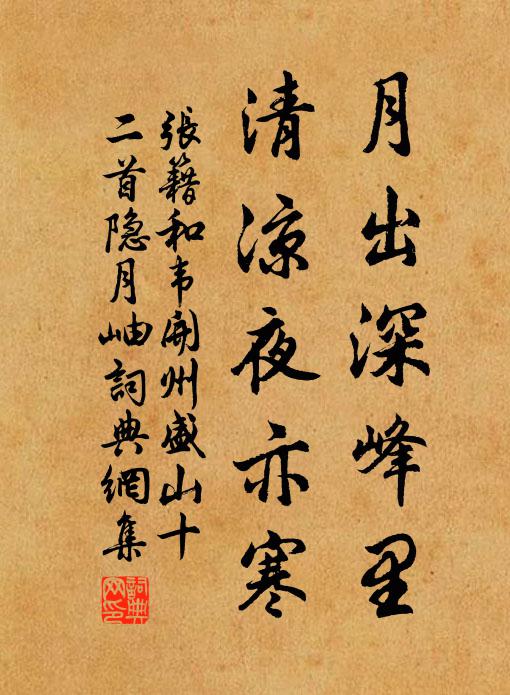 月出深峰里
清凉夜亦寒
張籍和韦開州盛山十
二首隐月岫詞典網集
詞典網印